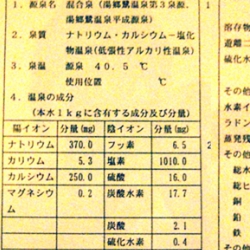 1．源泉名 混合泉（湯郷鷺温泉第3源泉、
湯郷鷺温泉平成源泉）
2．泉質 ナトリウム・カルシウム－塩化
物温泉（低張性アルカリ性温泉）
3．泉温 源泉 40.5 ℃
使用位置 ℃
4．温泉の成分
（本水1kgに含有する成分及び分量）
陽イオン 分量(mg) 陰イオン 分量(mg)
ナトリウム 370.0 フッ素 6.5
カリウム 5.3 塩素 1010.0
カルシウム 250.0 硫酸 16.0
マグネシウム 0.2 炭酸水素 17.7
炭酸 2.1
硫化水素 0.4
溶存物
遊離二
硫化
その他
水素
ラドン
蒸発残
2
その他
総水
総ヒ
銅
鉛
鉄